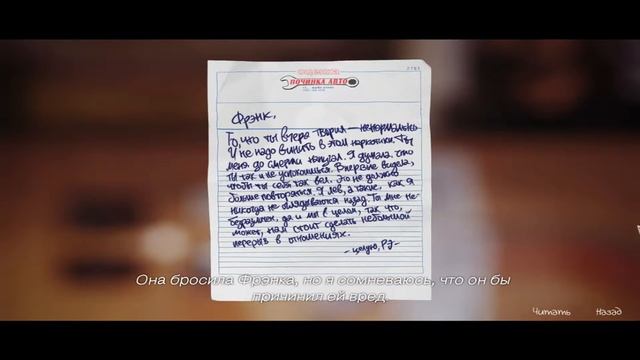 ПОЧИНКА АВТО
Фрэнк,
То, что ты вчера творил — ненормально
И не надо винить в этом наркотики. Ты
меня до смерти напугал. Я думала, что
ты так и не успокоишься. Впервые видела,
чтобы ты себя так вел. Это не должно
больше повторяться. Я лев, а такие, как я
никогда не оглядываются назад. Ты мне не-
безразличен, да и мы в целом, так что,
может, нам стоит сделать небольшой
перерыв в отношениях.
- целую, РЭ -
Она бросила Фрэнка, но я сомневаюсь, что он бы
причинил ей вред.
Читать Назад